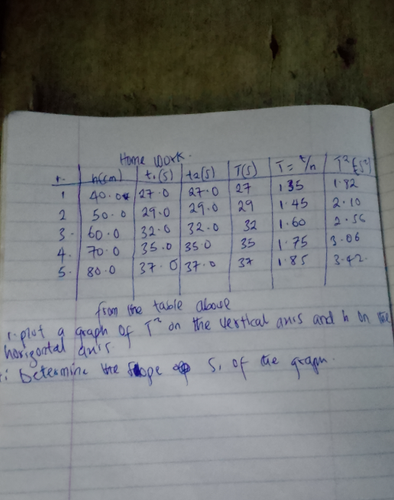 Home Work.
r. h(cm) t₁(s) t₂(s) T(s) T= t/n T²(s²)
1 40.0 27.0 27.0 27 1.35 1.82
2 50.0 29.0 29.0 29 1.45 2.10
3. 60.0 32.0 32.0 32 1.60 2.56
4. 70.0 35.0 35.0 35 1.75 3.06
5. 80.0 37.0 37.0 37 1.85 3.42
from the table above
plot a graph of T² on the vertical axis and h on the
horizontal axis.
Determine the slope S, of the graph.